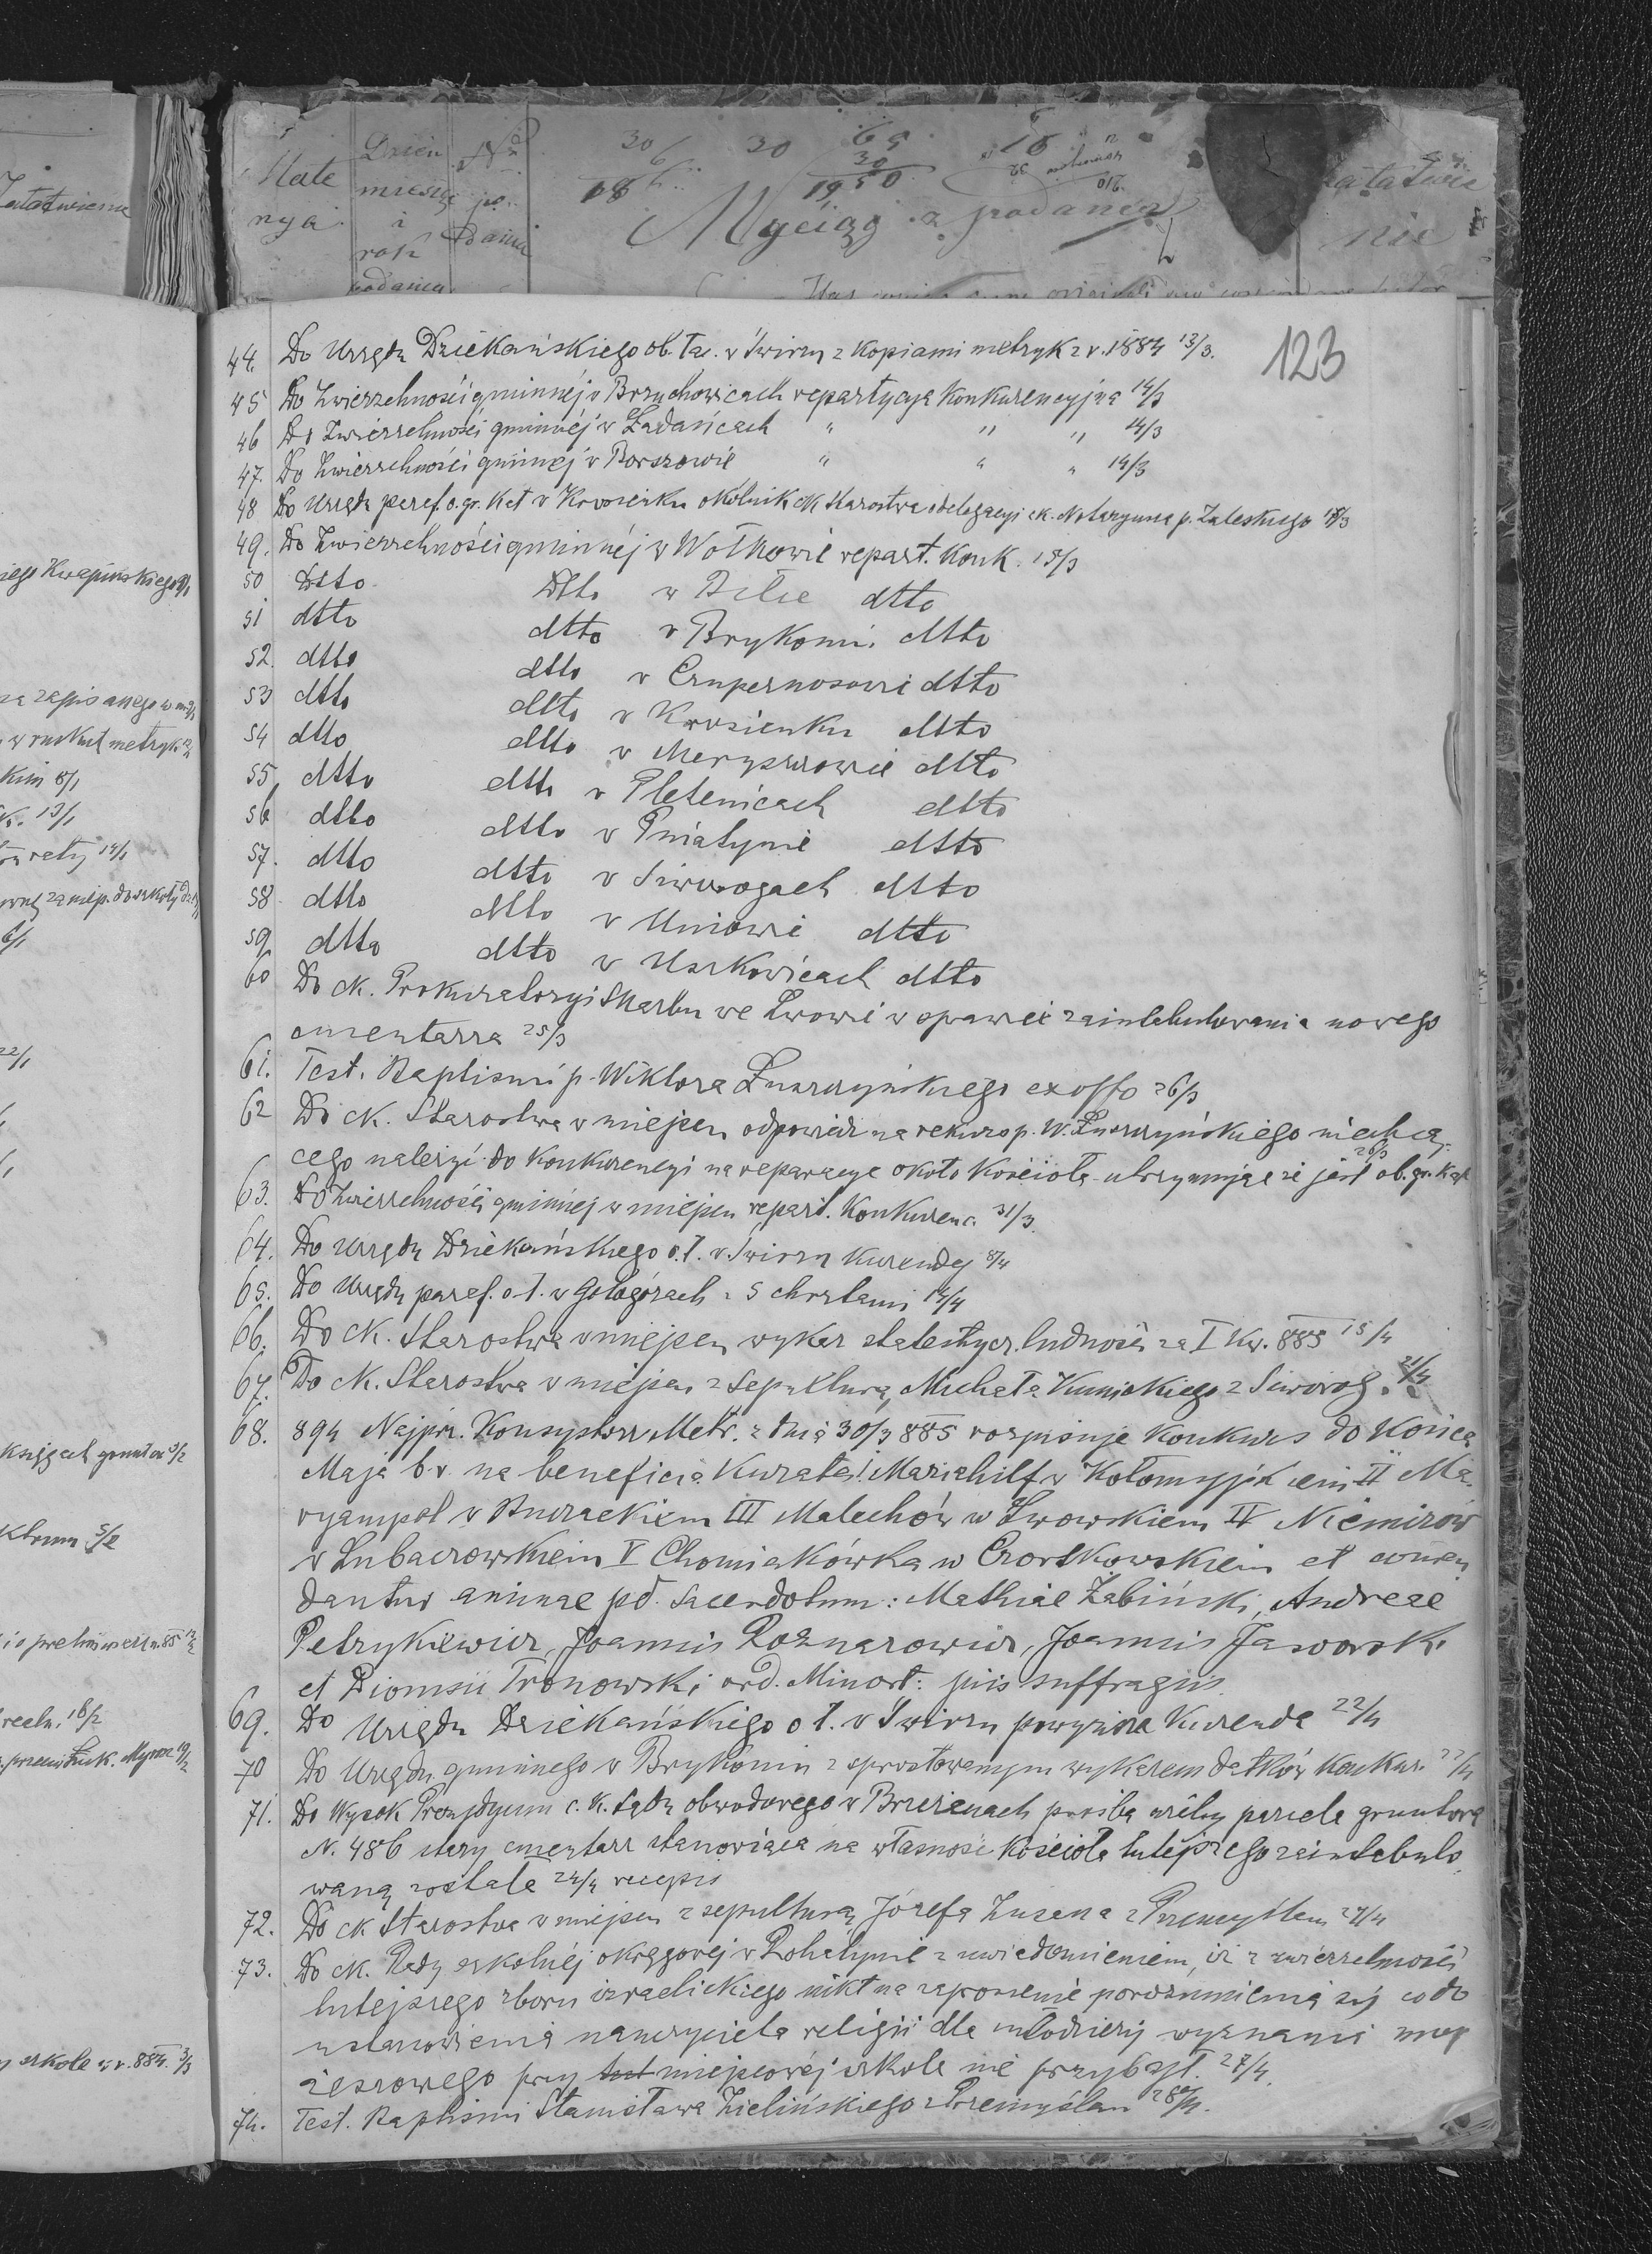 Mate Dzień
nya miesiąc
i
rok
Wyciąg z podania
nie
123
44. Do Urzędu Dziekańskiego ob. łac. w Świrzu z kopiami metryk z r. 1884 13/3.
45 Do Zwierzchności gminnéj w Brzuchowicach repartycya Konkurencyjna 14/3
46 Do Zwierzchności gminnéj w Ładańcach " " " 14/3
47. Do Zwierzchności gminnej w Borszowie " " " 14/3
48 Do Urzędu paraf. o. gr. kat w Krosienku okólnik ck Starostwa o delegacyi ck. Notaryusza p. Zaleskiego 18/3
49. Do Zwierzchności gminnéj w Wołkowie repart. Konk. 18/3
50 Dtto Dtto w Bilce dtto
51 dtto dtto w Brykoni. dtto
52. dtto dtto w Czupernosowie dtto
53 dtto dtto w Krosienku dtto
54 dtto dtto w Meryszczowie dtto
55. dtto dtto w Pletenicach dtto
56 dtto dtto w Pniatynie dtto
57. dtto dtto w Siworogach dtto
58 dtto dtto w Uniowie dtto
59 dtto dtto w Uszkowicach dtto
60 Do ck. Prokuratoryi Skarbu we Lwowie w sprawie zaintabulowania nowego
cmentarza 25/3
61. Test. Baptismi p. Wiktora Łuszczyńskiego ex offo 26/3
62 Do ck. Starostwa w miejscu odpowiedź na rekurs p. W. Łuszczyńskiego niechcą-
cego należyć do Konkurencyi na reparacye około Kościoła utrzymując że jest ob. gr. kat 26/3
63. Do Zwierzchności gminnéj w miejscu repart. Konkurenc. 31/3
64. Do Urzędu Dziekańskiego o. ł. w Świrzu Kurendę 8/4
65. Do Urzędu paraf. o. ł. w Gołogórach z 5 chrztami 14/4
66. Do ck. Starostwa w miejscu wykaz statestycz. ludności za I Kw. 885 15/4
67. Do ck. Starostwa w miejscu z sepulturą Michała Kunickiego z Siworog. 21/4
68. 894 Najprz. Konsystorz Metr. z dnia 30/3 885 rozpisuje Konkurs do Końca
Maja b. r. na beneficia Kurata I Mariahilf w Kołomyjsk iem II Ma-
ryampol w Buczackiem III Malechów w Lwowskiem IV Niemirów
w Lubaczowskiem V Chomiakówka w Czortkowskiem et comen
dantur animae pd. Sacerdotum: Mathiae Żabiński, Andreae
Petrykiewicz, Joannis Roznarowicz, Joannis Jaworski
et Dionisii Tronowski ord. Minort: piis suffragiis.
69. Do Urzędu Dziekańskiego o ł. w Świrzu powyższa Kurenda 22/4
70 Do Urzędu gminnego w Brykonin z sprostowanym wykazem datków Konkur. 22/4
71. Do Wysok Prezydyum c. k. Sądu obwodowego w Brzeżanach prośba ażeby parcela gruntowa
N. 486 stary cmentarz stanowiąca na własność kościoła tutéjszego zaintabulo
waną została 24/4 recepis
72. Do ck Starostwa w miejscu z sepulturą Józefa Zuzana z Przemyślan 24/4
73. Do ck. Rady szkolnéj okręgowéj w Rohatynie z uwiadomieniem, iż z zwierzchności
tutejszego zboru izraelickiego nikt na zaproszenie porozumienia się co do
ustanowienia nauczyciela religii dla młodzieży wyznania moj
żeszowego przy miejscowéj szkole nie przybył. 27/4.
74. Test. Baptismi Stanisława Zielińskiego z Przemyślan 28/4.
Załatwienie
iego Kwapińskiego
za zapis anego w
w metryk
kim 8/1
13/1
14/1
6/1
22/1
księgach grunt
5/2
18/2
szkole z r. 884. 3/3